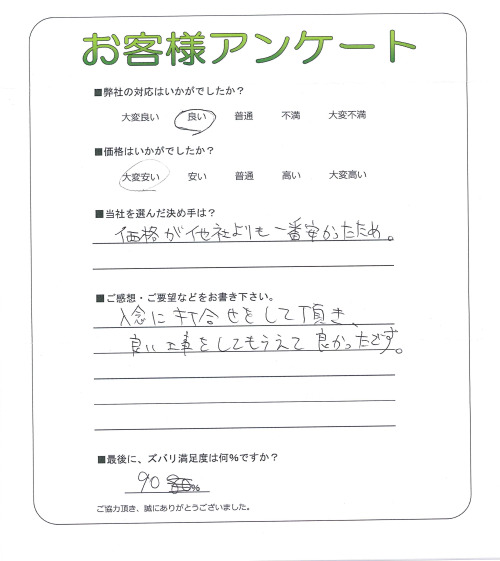 お客様アンケート
■弊社の対応はいかがでしたか？
大変良い 良い 普通 不満 大変不満
■価格はいかがでしたか？
大変安い 安い 普通 高い 大変高い
■当社を選んだ決め手は？
価格が他社よりも一番安かったため。
■ご感想・ご要望などをお書き下さい。
入念に打合せをして頂き、
良い工事をしてもらえて良かったです。
■最後に、ズバリ満足度は何%ですか？
90 %
ご協力頂き、誠にありがとうございました。